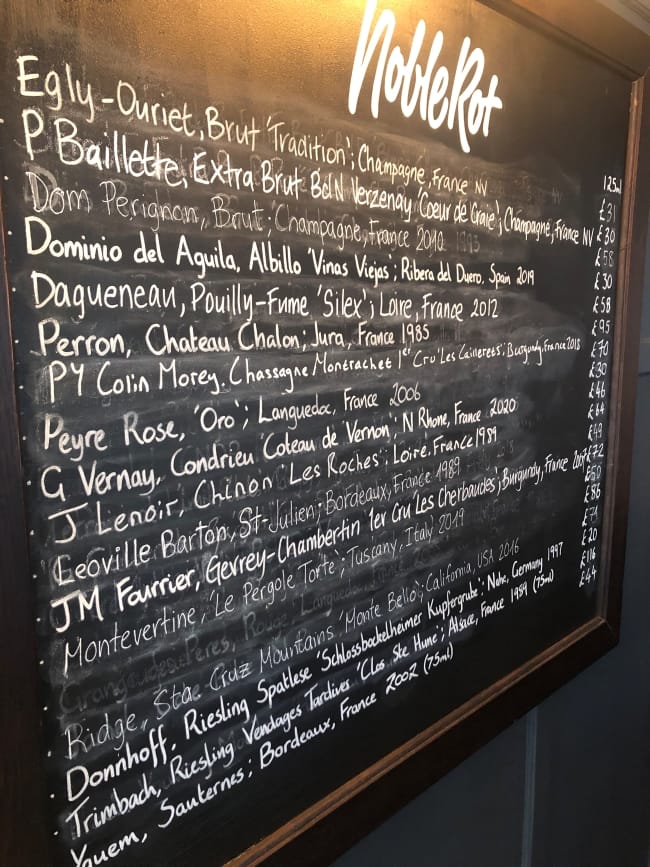 NobleRot
125ml
· Egly-Ouriet, Brut 'Tradition'; Champagne, France NV £31
· P Baillette, Extra Brut BdN Verzenay 'Coeur de Craie'; Champagne, France NV £30
· Dom Perignon, Brut; Champagne, France 2010 £58
· Dominio del Aguila, Albillo 'Vinas Viejas'; Ribera del Duero. Spain 2019 £30
· Dagueneau, Pouilly-Fume 'Silex'; Loire, France 2012 £58
· Perron, Chateau Chalon; Jura, France 1985 £95
· PY Colin Morey. Chassagne Montrachet 1er Cru 'Les Caillerets'; Burgundy, France 2018 £70
· Peyre Rose, 'Oro'; Languedoc, France 2006 £30
· G Vernay, Condrieu 'Coteau de Vernon'; N Rhone, France 2020 £46
· J Lenoir, Chinon 'Les Roches'; Loire. France 1989 £64
· Leoville Barton, St-Julien; Bordeaux, France 1989 £49
· JM Fourrier, Gevrey-Chambertin 1er Cru 'Les Cherbaudes'; Burgundy, France 2007 £72
· Montevertine, 'Le Pergole Torte'; Tuscany, Italy 2019 £50
· Granges des Peres, Rouge; Languedoc, France £86
· Ridge, Sta. Cruz Mountains 'Monte Bello'; California, USA 2016 £71
· Donnhoff, Riesling Spatlese 'Schlossbockelheimer Kupfergrube'; Nahe, Germany 1997 £20
· Trimbach, Riesling Vendages Tardives 'Clos Ste Hune'; Alsace, France 1989 (75ml) £116
Yquem, Sauternes; Bordeaux, France 2002 (75ml) £44